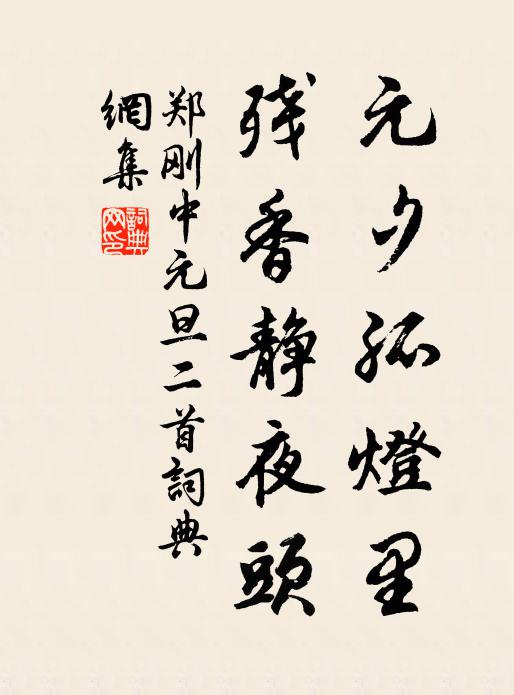 元夕孤燈里
残香静夜頭
郑刚中元旦二首詞典
網集
詞典网印